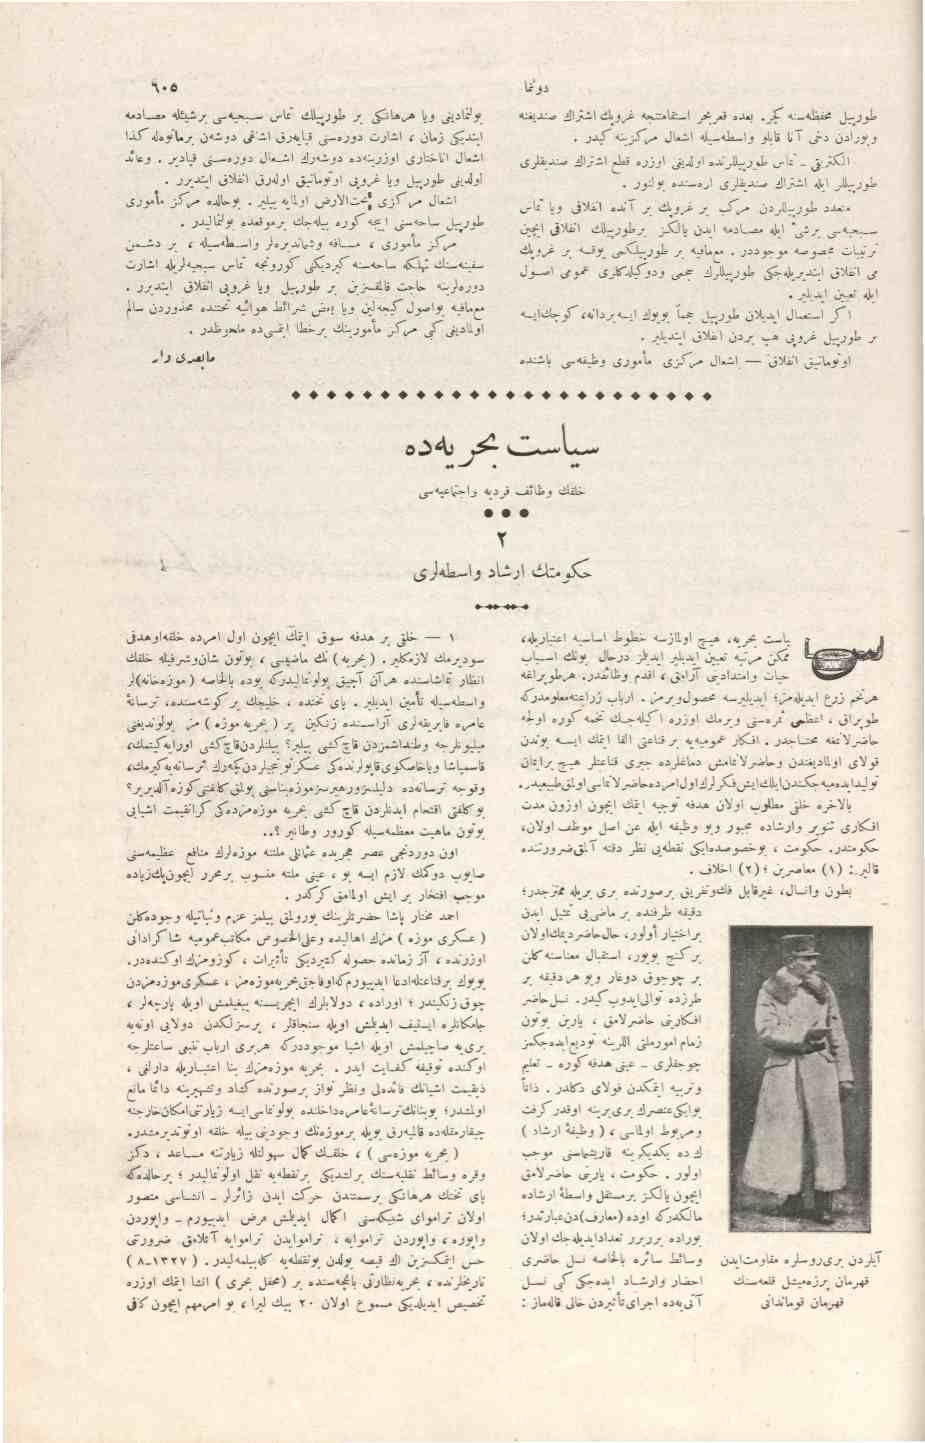 دونما
٦٠٥
طورپيل محفظه‌سنه كچر. بعده قعربحر استقامتنجه غروپك اشتراك صنديغنه
وبورادن دخى آنا قابلو واسطه‌سيله اشعال مركزينه كيدر .
الكتريقى ـ تماس طورپيللرنده اولديغى اوزره قطع اشتراك صنديقلرى
طورپيللر ايله اشتراك صنديقلرى ارەسنده بولنور .
متعدد طورپيللردن مركب بر غروپك بر آنده انفلاقى ويا تماس
سجيه‌سى برشئ ايله مصادمه ايدن يالكز برطورپيلك انفلاقى ايچين
ترتيبات مخصوصه موجوددر . مع‌مافيه بر طورپيلكمى يوقسه بر غروپك
مى انفلاق ايتديريله‌جكى طورپيللرك حجمى ودوكيلدكلرى عمومى اصول
ايله تعيين ايديلير .
اكر استعمال ايديلان طورپيل حجماً بويوك ايسه بردانه، كوچك‌ايسه
بر طورپيل غروپى هپ بردن انفلاق ايتديريلير .
اوتوماتيق انفلاق — اشعال مركزى مأمورى وظيفه‌سى باشنده
بولنماديغى ويا هرهانكى بر طورپيلك تماس سجيه‌سى برشيئله مصادمه
ايتديكى زمان ، اشارت دوره‌سنى قپايه‌رق اشاغى دوشه‌ن برمانوه‌له كذا
اشعال اناختارى اوزرينه‌ده دوشه‌رك اشعال دوره‌سنى قپادير . وعائد
اولديغى طورپيل ويا غروپى اوتوماتيق اوله‌رق انفلاق ايتديرر .
اشعال مركزى تحت‌الارض اولمايه بيلير . بوحالده مركز مأمورى
طورپيل ساحه‌سنى اييجه كوره بيله‌جك برموقعده بولنماليدر .
مركز مأمورى ، مسافه وشماندیره‌لر واسطه‌سيله ، بر دشمن
سفينه‌سنك تهلكه ساحه‌سنه كيرديكنى كورونجه تماس سجيه‌لريله اشارت
دوره‌لرينه حاجت قالمقسزين بر طورپيل ويا غروپى انفلاق ايتديرر .
مع‌مافيه بواصول كيجه‌لين ويا بعض شرائط هوائيه تحتنده محذوردن سالم
اولماديغى كبى مركز مأمورينك برخطا ايتمسى‌ده ملحوظدر .
مابعدى وار
سياست بحريه‌ده
خلقك وظائف فرديه واجتماعيه‌سى
٢
حكومتك ارشاد واسطه‌لرى
ياست بحريه، هيچ اولمازسه خطوط اساسيه اعتباريله،
ممكن مرتبه تعيين ايديلير ايديلمز درحال بونك اسباب
حيات وامتدادينى آرامق ، اقدم وظائفدر. هرطوپراغه
هرتخم زرع ايديله‌مز؛ ايديليرسه محصول‌ويرمز . ارباب زراعته‌معلومدركه
طوپراق ، اعظمى ثمره‌سنى ويرمك اوزره اكيله‌جك تخمه كوره اولجه
حاضرلانمغه محتاجدر . افكار عموميه‌يه بر قناعتى القا ايتمك ايسه بوندن
قولاى اولماديغندن وحاضرلانمامش دماغلرده جبرى قناعتلر هيچ برايمان
توليدايده‌ميه‌جكندن‌ايلك‌ايش‌فكرلرك‌اول‌امرده‌حاضرلانماسى‌اولمق‌طبيعيدر.
بالاخره خلقى مطلوب اولان هدفه توجيه ايتمك ايچون اوزون مدت
افكارى تنوير وارشاده مجبور وبو وظيفه ايله عن اصل موظف اولان،
حكومتدر. حكومت ، بوخصوصده‌ايكى نقطه‌يى نظر دقته آلمق‌ضرورتنده
قالير: (١) معاصرين ؛ (٢) اخلاف .
بطون وانسال، غيرقابل فك‌وتفريق برصورتده برى بريله ممتزجدر؛
دقيقه ظرفنده بر ماضى‌يى تمثيل ايدن
براختيار أولور، حال‌حاضرديمك‌اولان
بر كنج بويور، استقبال معناسنه كلن
بر چوجوق دوغار وبو هر دقيقه بر
طرزده توالى‌ايدوب كيدر. نسل‌حاضر
افكارينى حاضرلامق ، يارين بوتون
زمام امورملتى اللرينه توديع‌ايده‌جكمز
چوجقلرى ـ عينى هدفه كوره ـ تعليم
وتربيه ايتمكدن قولاى دكلدر. ذاتاً
بوايكى‌عنصرك برى‌برينه اوقدركرفت
ومربوط اولماسى ، ( وظيفۀ ارشاد )
ك ده يكديكرينه قاريشماسنى موجب
اولور . حكومت ، يارينى حاضرلامق
ايچون يالكز برمستقل واسطۀ ارشاده
مالكدركه اوده (معارف)دن‌عبارتدر؛
بوراده بررر تعدادايديله‌جك اولان
وسائط سائره بالخاصه نسل حاضرى
احضار وارشاد ايده‌جكى كبى نسل
آتى‌يه‌ده اجراى‌تأثيردن خالى قاله‌ماز :
آيلردن برى‌روسلره مقاومت‌ايدن
قهرمان پرزه‌ميشل قلعه‌سنك
قهرمان قوماندانى
١ — خلقى بر هدفه سوق ايتمك ايچون اول امرده خلقه‌اوهدفى
سوديرمك لازمكلير. (بحريه) نك ماضيسى ، بوتون شان‌وشرفيله خلقك
انظار تماشاسنده هرآن آچيق بولونماليدركه بوده بالخاصه (موزه‌خانه)لر
واسطه‌سيله تأمين ايديلير . پاى تختده ، خليجك بر كوشه‌سنده، ترسانۀ
عامره فابريقه‌لرى آراسنده زنكين بر ( بحريه موزه ) مز بولونديغنى
ميليونلرجه وطنداشمزدن قاچ كشى بيلير؟ بيلنلردن‌قاچ‌كشى اورايه‌كيتمك،
قاسمپاشا وياخاصكوى‌قاپولرنده‌كى عسكرنوبتجيلردن‌كچه‌رك ترسانه‌يه‌كيرمك،
وقوجه ترسانه‌ده دليلمزورهبرسزموزه‌بناسنى بولمق‌كلفتنى‌كوزه‌آلديرير؟
بوكلفتى اقتحام ايدنلردن قاچ كشى بحريه موزه‌مزده‌كى كرانقيمت اشيايى
بوتون ماهيت معظمه‌سيله كورور وطانير ؟..
اون دوردنجى عصر هجريده عثمانلى ملتنه موزه‌لرك منافع عظيمه‌سنى
صايوب دوكمك لازم ايسه بو ، عينى ملته منسوب برمحرر ايچون‌پك‌زياده
موجب افتخار بر ايش اولمامق كركدر .
احمد مختار پاشا حضرتلرينك يورولمق بيلمز عزم وثباتيله وجوده‌كلن
( عسكرى موزه ) مزك اهاليده وعلى‌الخصوص مكاتب‌عموميه شاكردانى
اوزرنده ، آز زمانده حصوله كتيرديكى تأثيرات ، كوزومزك اوكنده‌در.
بويوك برقناعتله‌ادعا ايدييورم‌كه‌اوفاجق‌بحريه‌موزه‌مز ، عسكرى‌موزه‌مزدن
چوق زنكيندر ؛ اوراده ، دولابلرك ايچريسنه ييغيلمش اويله پارچه‌لر ،
جامكانلره ايستيف ايديلمش اويله سنجاقلر ، يرسزلكدن دولايى اوته‌يه
برى‌يه صاچيلمش اويله اشيا موجوددركه هربرى ارباب تتبعى ساعتلرجه
اوكنده توقيفه كفايت ايدر. بحريه موزه‌مزك بنا اعتباريله دارلغى ،
ذيقيمت اشيانك فائده‌لى ونظر نواز برصورتده كشاد وتشهيرينه دائما مانع
اولمشدر؛ بوبنانك‌ترسانۀعامره‌داخلنده بولونماسى‌ايسه زيارتى‌امكان‌خارجنه
چيقارمقله‌ده قالميه‌رق بويله برموزه‌نك وجودينى بيله خلقه اونوتديرمشدر.
( بحريه موزه‌سى ) ، خلقك كمال سهولتله زيارتنه مساعد ، دكز
وقره وسائط نقليه‌سنك برلشديكى برنقطه‌يه نقل اولونماليدر ؛ برحالده‌كه
پاى تختك هرهانكى برسمتندن حركت ايدن زائرلر ـ انشاسى متصور
اولان تراموای شبكه‌سنى اكمال ايديلمش فرض ايدييورم ـ واپوردن
واپوره ، واپوردن تراموايه ، تراموايدن تراموايه آتلامق ضرورتى
حس ايتمكسزين اك قيصه يولدن بونقطه‌يه كله‌بيلمه‌ليدر. ( ١٣٢٧ـ٨ )
تاريخلرنده ، بحريه‌نظارتى باغچه‌سنده بر (محفل بحرى) انشا ايتمك اوزره
تخصيص ايديلديكى مسموع اولان ٢٠ بيك ليرا ، بو امرمهم ايچون كافى